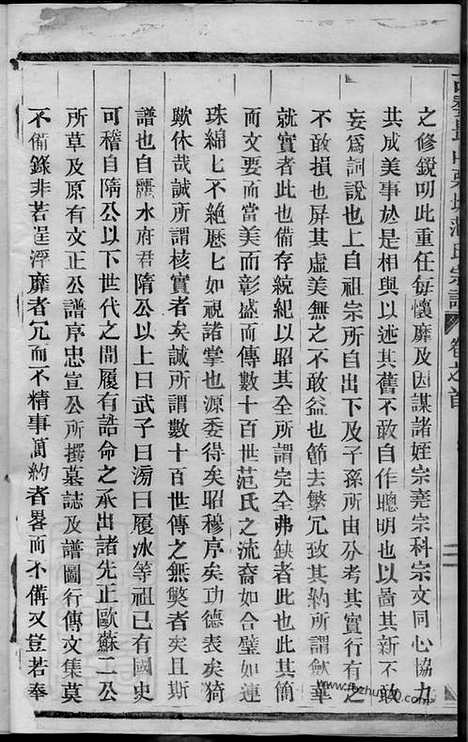 之修鋭明此重任每懷靡及因謀諸姪宗堯宗科宗文同心協力
共成美事於是相與以述其舊不敢自作聰明也以啚其新不敢
妄爲詞說也上自祖宗所自出下及子孫所由分考其實行有之
不敢損也屏其虛美無之不敢益也節去繁冗致其約所謂歛華
就實者此也備存統紀以昭其全所謂完全弗缺者此也其簡
而文要而當美而彰盛而傳數十百世范氏之流裔如合璧如連
珠綿匕不絶歴匕如視諸掌也源委得矣昭穆序矣功德表矣猗
歟休哉誠所謂核實者矣誠所謂數十百世傳之無斁者矣且斯
譜也自麗水府君隋公以上曰武子曰滂曰履冰等祖已有國史
可稽自隋公以下世代之間履有誥命之承出諸先正歐蘇二公
所草及原有文正公譜序忠宣公所撰墓誌及譜圖行傳文集莫
不備錄非若逞浮靡者冗而不精事蕳約者畧而不備又豈若奉
氏宗譜 卷之首
www.fozhu920.com